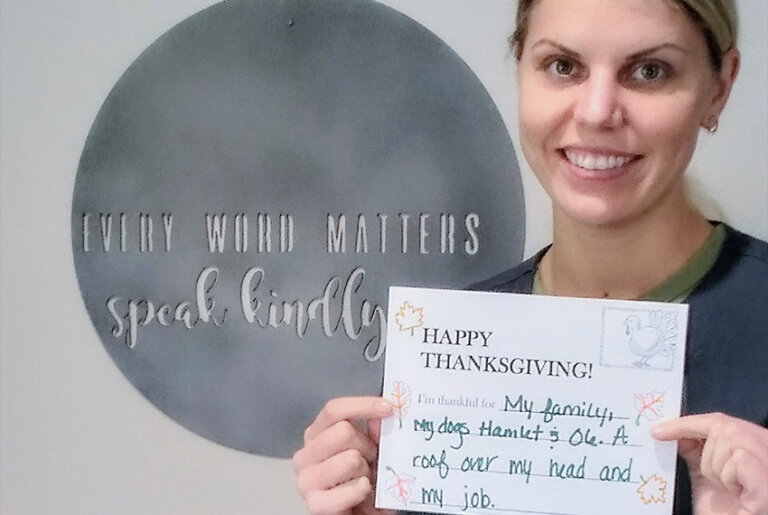 EVERY WORD MATTERS
speak kindly
HAPPY
THANKSGIVING!
I'm thankful for My family,
my dogs Hamlet & Ole. A
roof over my head and
my job.